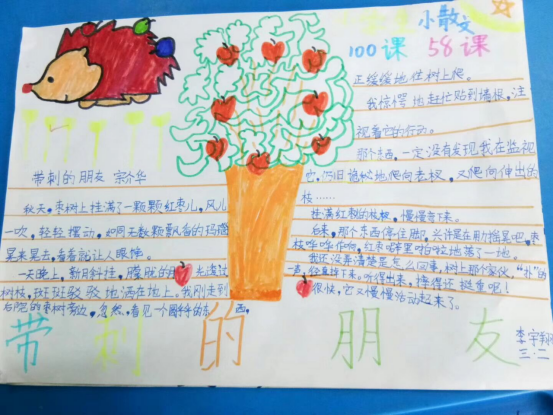 小散文
100课 58课
带刺的朋友 宗介华
秋天,枣树上挂满了一颗颗红枣儿,风儿
一吹,轻轻摆动,如同无数颗飘香的玛瑙
晃来晃去,看着就让人眼馋。
一天晚上,新月斜挂,朦胧的月光透过
树枝,斑斑驳驳地洒在地上。我刚走到
后院的枣树旁边,忽然,看见一个圆乎乎的东西,
正缓缓地往树上爬。
我惊愕地赶忙贴到墙根,注
视着它的行动。
那个东西,一定没有发现我在监视
它,仍旧诡秘地爬向老杈,又爬向伸出的
枝……
挂满红枣的枝杈,慢慢弯下来。
后来,那个东西停住脚,兴许是在用力摇晃吧,枣
枝哗哗作响,红枣噼里啪啦地落了一地。
我还没弄清楚是怎么回事,树上那个家伙,“扑”的
一声径直掉下来。听得出来,摔得还挺重呢!
很快,它又慢慢活动起来了。
带刺的朋友
李宇翔
三.二